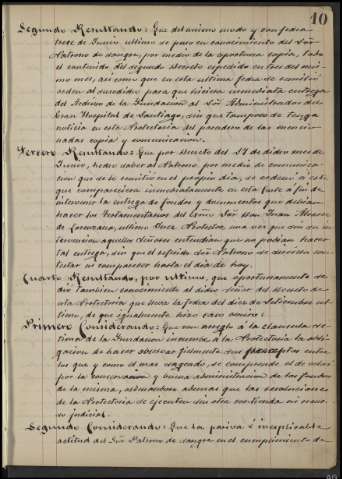 10
Segundo Resultando: Que del mismo modo y con fecha
trece de Junio último se puso en conocimiento del Sor
Patrono de sangre, por medio de la oportuna copia, todo
el contenido del segundo decreto expedido en tres del mis-
mo mes, así como que en esta última fecha se remitió
orden al aludido para que hiciera inmediata entrega
del Archivo de la Fundacion al Sor Administrador del
Gran Hospital de Santiago, sin que tampoco se tenga
noticia en esta Protectoria del paradero de las mencio-
nadas copia y comunicacion.
Tercero Resultando: Que por decreto del 17 de dicho mes de
Junio, hecho saber al Patrono por medio de comunicacion
que se le remitió en el propio dia, se ordenó a este
que compareciera inmediatamente en esta Corte á fin de
intervenir la entrega de fondos y documentos que debian
hacer los Testamentarios del Excmo Sor Don Juan Alvarez
de Lorenzana, último Juez Protector, una vez que sin su in-
tervencion aquellos señores entendian que no podian hacer
tal entrega, sin que el referido Sor Patrono se
ni comparecer hasta el dia de hoy.
Cuarto Resultando, por último, que oportunamente se
dió tambien conocimiento al dicho Señor del decreto de
esta Protectoria que lleva la fecha del diez de Setiembre úl-
timo, de que igualmente hizo caso omiso:
Primero Considerando: Que con arreglo á la clausula se-
tima de la Fundacion incumbe á la Protectoria la obli-
gacion de hacer observar fielmente sus preceptos entre
los que y como el mas sagrado, se comprende el de velar
por la conservacion y buena administracion de los fondos
de la misma, estando ademas que las resoluciones
de la Protectoria se ejecuten sin otra contienda ni recur-
so judicial.
Segundo Considerando: Que la pasiva é inexplicable
actitud del Sor Patrono de sangre en el cumplimiento de